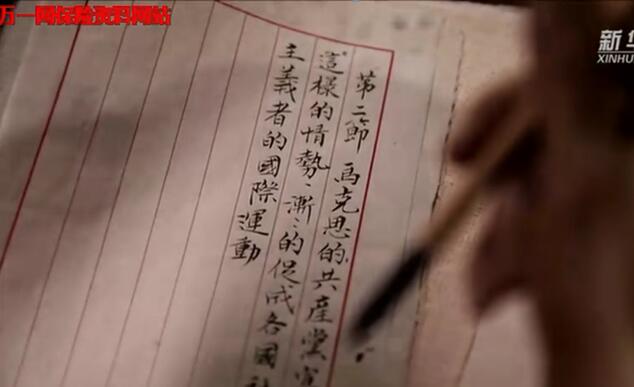 万一网保险资料网站
新华
XINHU
第二節 馬克思的共産黨宣
這樣的情勢、漸々的促成各國
主義者的國際運動